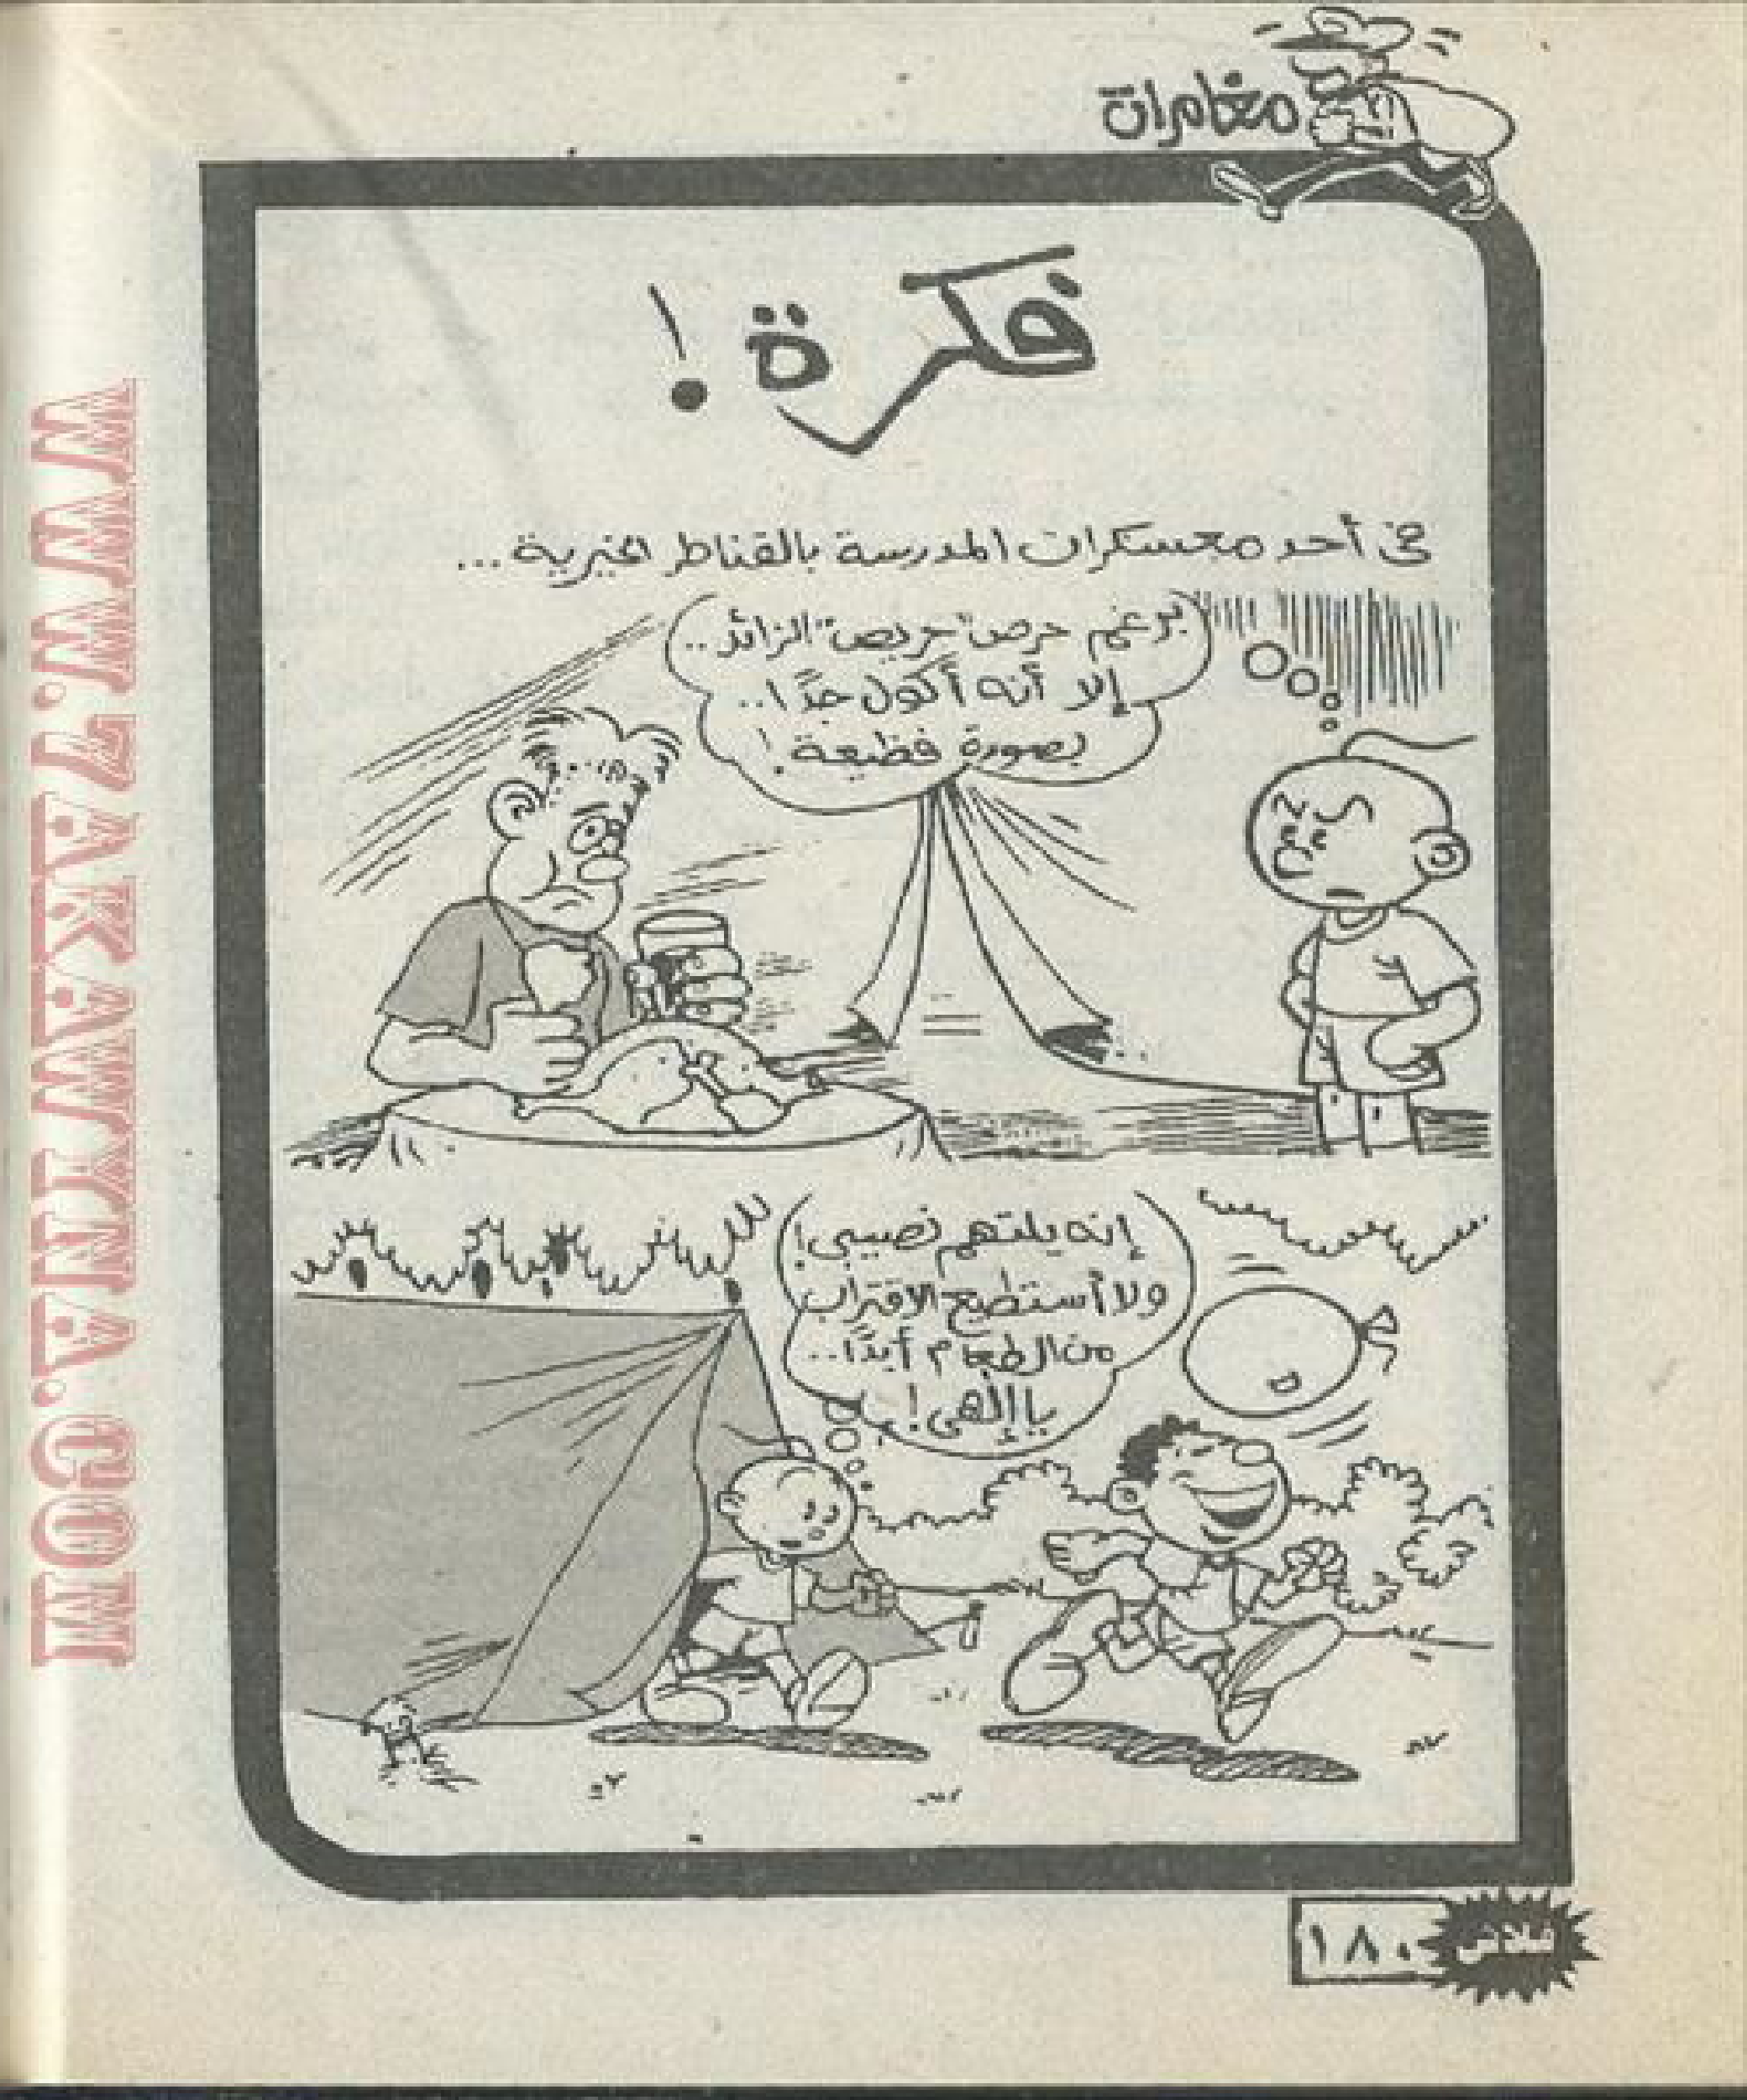 مغامرات
فكرة!
في أحد معسكرات المدرسة بالقناطر الخيرية...
برغم حرص "حريص" الزائد..
إلا أنه أكول جدًا..
بصورة فظيعة!
إنه يلتهم نصيبي!
ولا أستطيع الاقتراب
من الطعام أبدًا..
يا إلهي!
فلاش
١٨٠
WWW.7AKAWITNA.COM